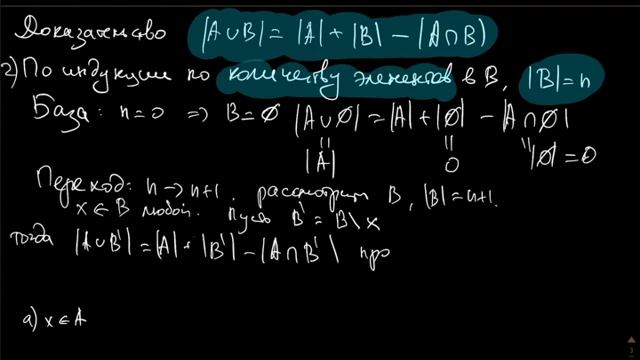 Доказательство |A∪B| = |A| + |B| - |A∩B|
2) По индукции по количеству элементов в B, |B|=n
База: n=0 ⇒ B=∅ |A∪∅| = |A| + |∅| - |A∩∅|
|| || ||
|A| 0 |∅|=0
Переход: n→n+1. рассмотрим B, |B|=n+1.
x∈B любой. Пусть B' = B\x
тогда |A∪B'| = |A| + |B'| - |A∩B'| про
а) x∈A